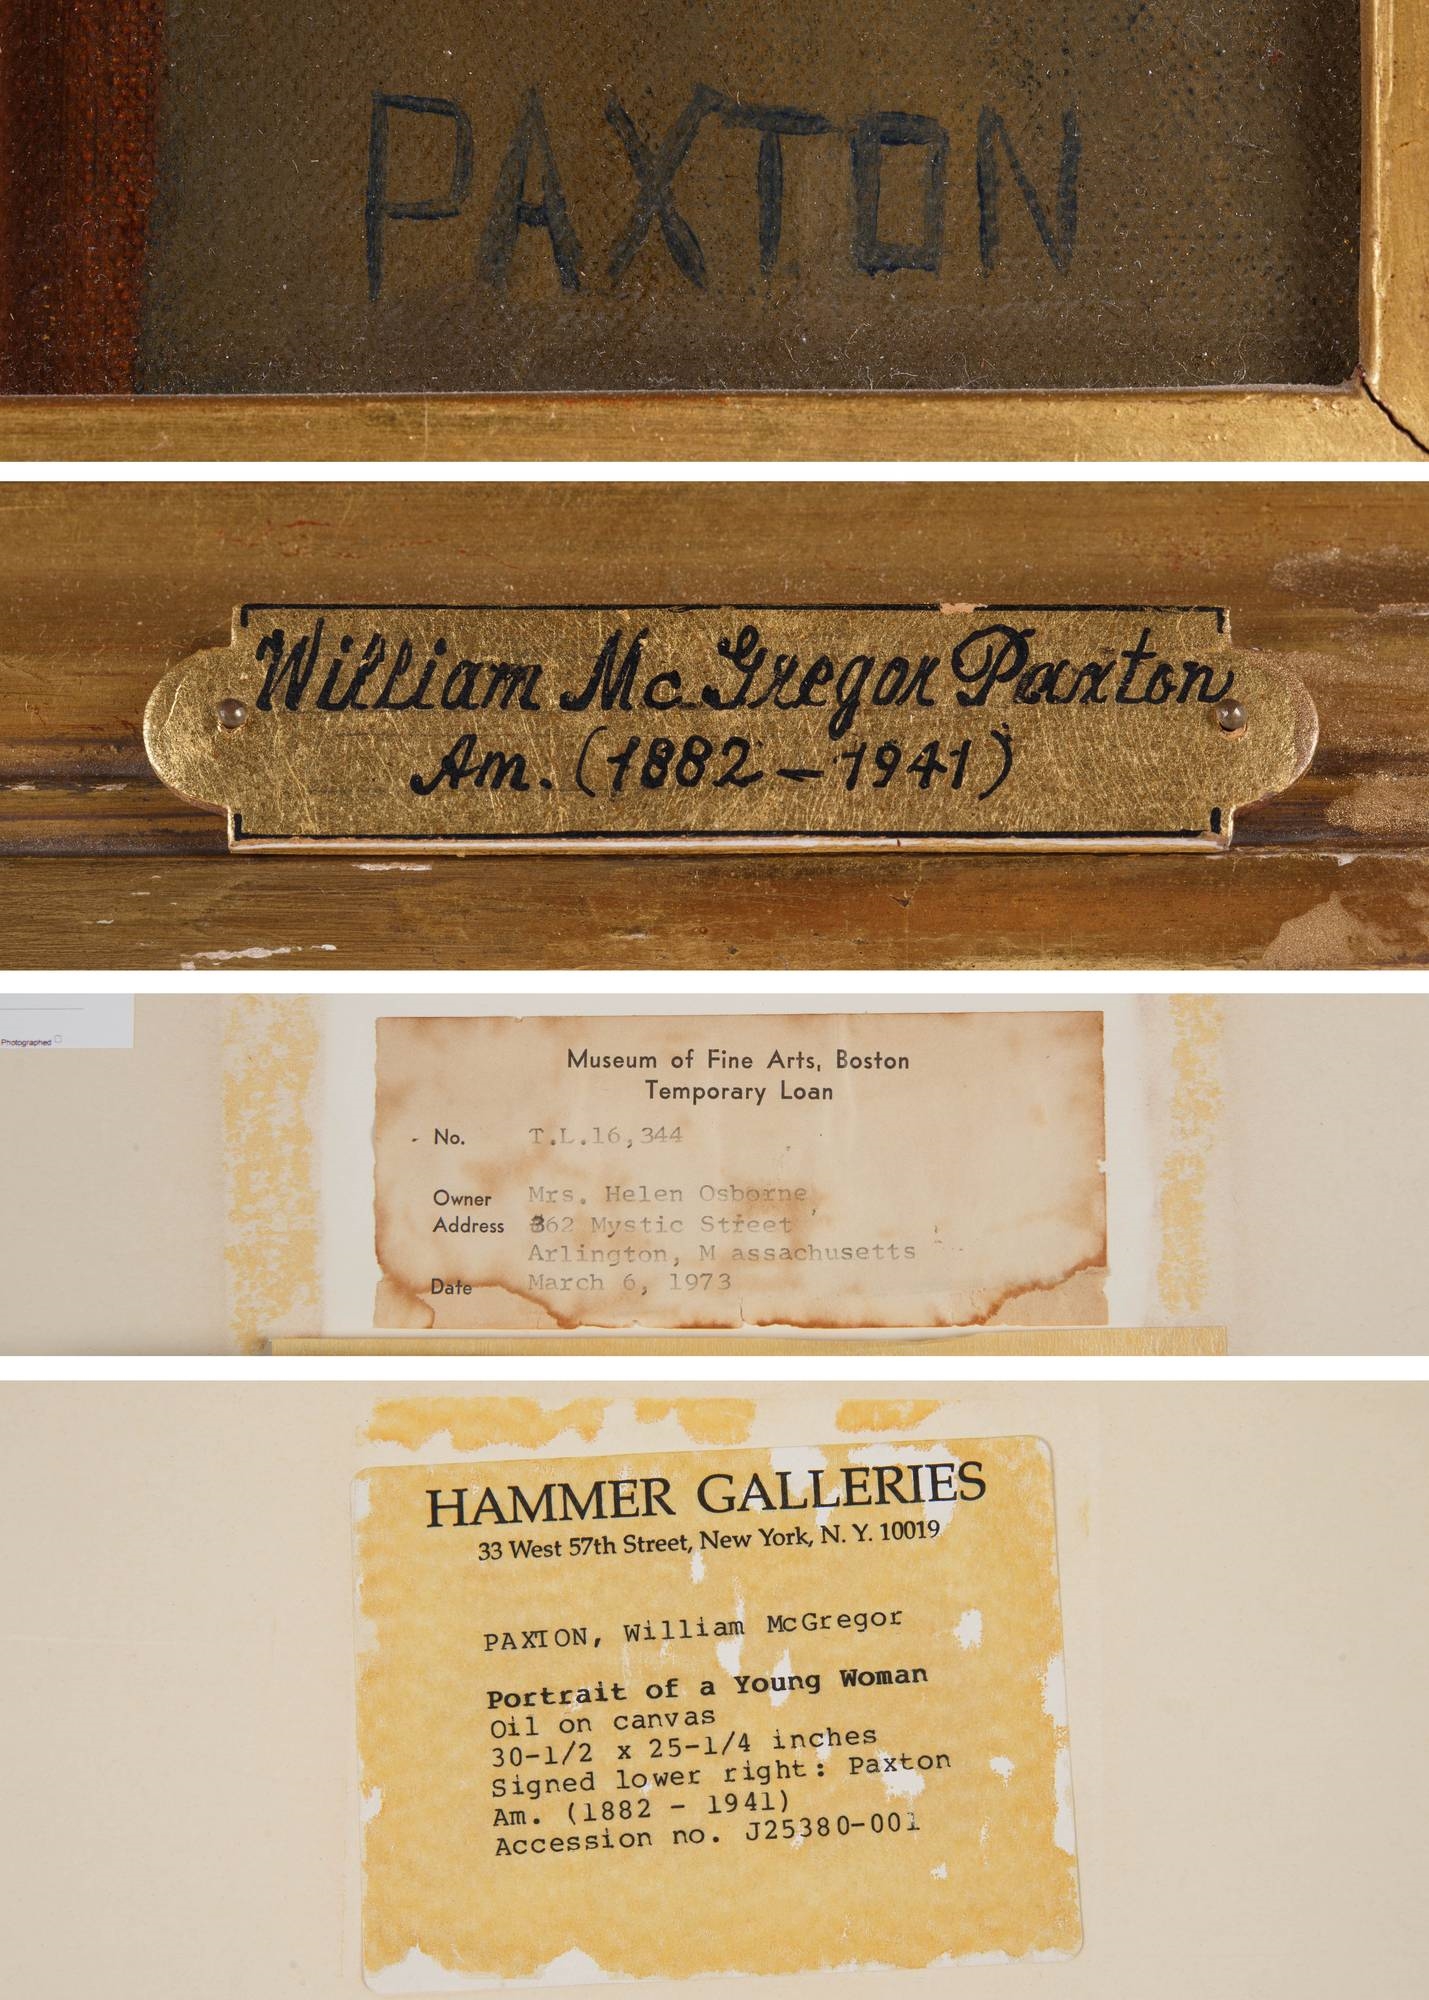 PAXTON
William McGregor Paxton
Am. (1882 – 1941)
Photographed
Museum of Fine Arts, Boston
Temporary Loan
No. T.L.16,344
Owner Mrs. Helen Osborne
Address 362 Mystic Street
Arlington, M assachusetts
Date March 6, 1973
HAMMER GALLERIES
33 West 57th Street, New York, N. Y. 10019
PAXTON, William McGregor
Portrait of a Young Woman
Oil on canvas
30-1/2 x 25-1/4 inches
Signed lower right: Paxton
Am. (1882 - 1941)
Accession no. J25380-001